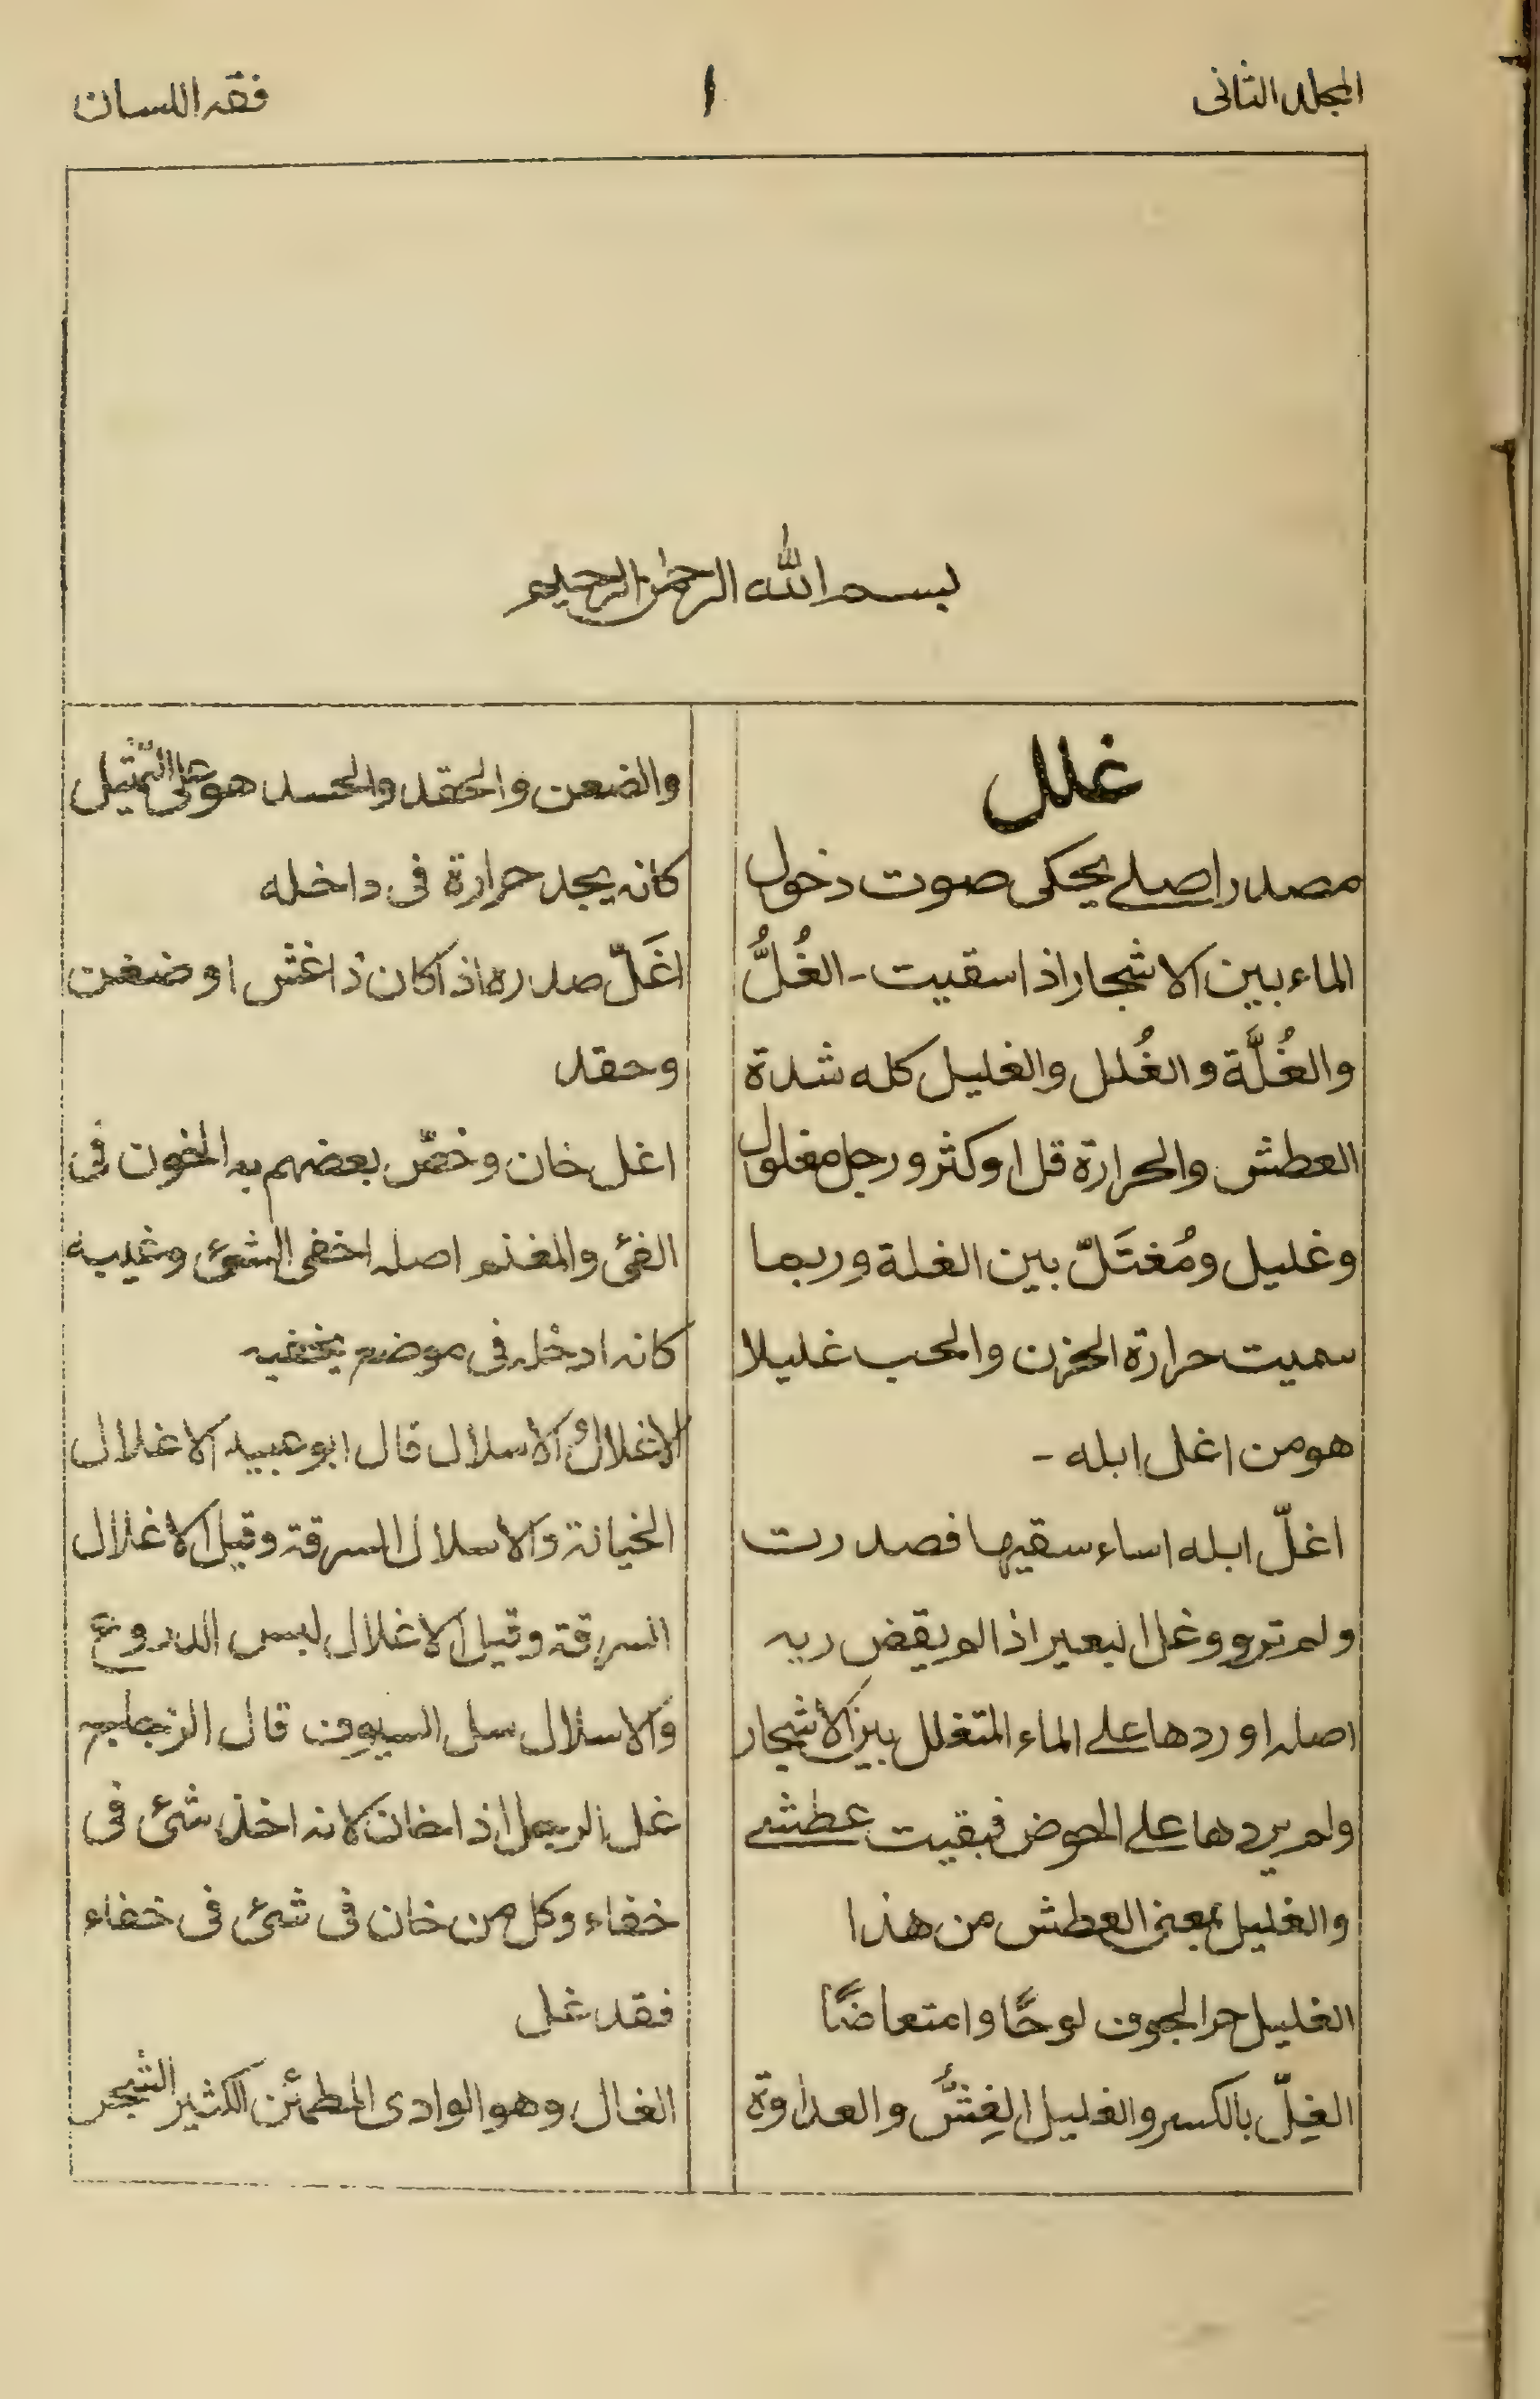 المجلد الثانى
١
فقه اللسان
بسم الله الرحمٰن الرحيم
غلل
مصدر اصلے يحكى صوت دخول
الماء بين الاشجار اذا سقيت - الغُلُّ
والغُلَّة والغُلل والغليل كله شدة
العطش والحرارة قل او كثر ورجل مغلول
وغليل ومُغتَلّ بين الغلة وربما
سميت حرارة الحزن والحب غليلا
هو من اغل ابله -
اغلّ ابله اساء سقيها فصدرت
ولم ترو وغل البعير اذا لم يقض ريه
اصله اوردها علے الماء المتغلل بين الاشجار
ولم يردها علے الحوض فبقيت عطشے
والغليل بمعنى العطش من هذا
الغليل حر الجوف لوحًا وامتعاضًا
الغِلّ بالكسر والغليل الغِشُّ والعداوة
والضعن والحقد والحسد هو على التمثيل
كانه يجد حرارة فى داخله
اغَلّ صدره اذا كان ذا غش او ضغن
وحقد
اغل خان وخصّ بعضهم به الخون فى
الفئ والمغنم اصله اخفى الشئ وغيبه
كانه ادخله فى موضع يخفيه
الاغلالُ الاسلال قال ابو عبيد الاغلال
الخيانة والاسلال السرقة وقيل الاغلال
السرقة وقيل الاغلال لبس الدروع
والاسلال سل السيوف قال الزجاج
غل الرجل اذا خان لانه اخذ شئ فى
خفاء وكل من خان فى شئ فى خفاء
فقد غل
الغال وهو الوادى المطمئن الكثير الشجر